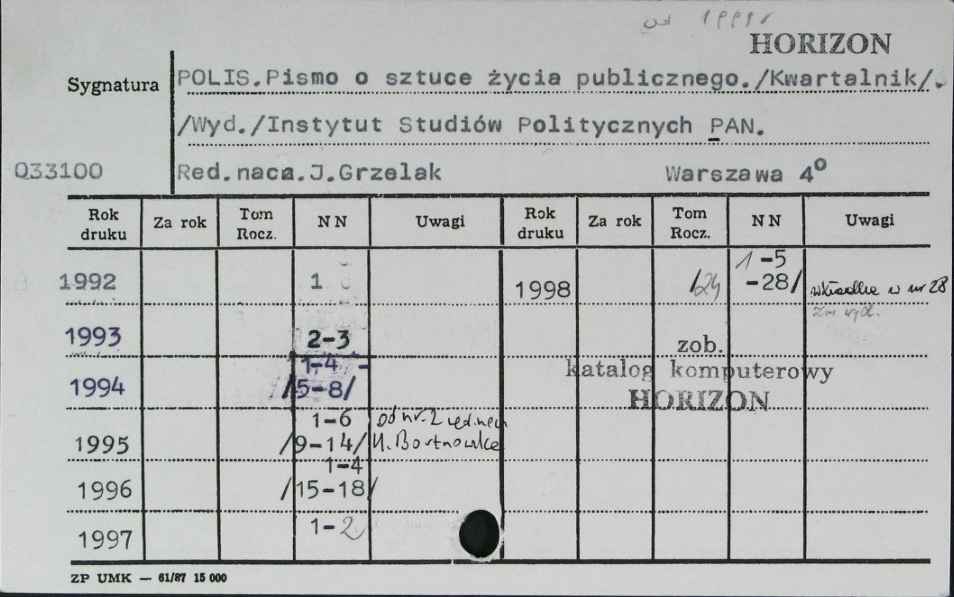 od 1999r
HORIZON
Sygnatura POLIS.Pismo o sztuce życia publicznego./Kwartalnik/.
/Wyd./Instytut Studiów Politycznych PAN.
Q33100 Red.nacz.J.Grzelak Warszawa 4°
Rok druku Za rok Tom Rocz. NN Uwagi Rok druku Za rok Tom Rocz. NN Uwagi
1992 1 1998 /24 1-5 -28/ wkładka w nr 28
Zm wyd.
1993 2-3
zob.
1994 1-4 /5-8/
katalog komputerowy
HORIZON
1995 1-6 /9-14/ od nr. 2 red. nacz. H. Bortnowska
1996 1-4 /15-18/
1997 1-2
ZP UMK — 61/87 15 000